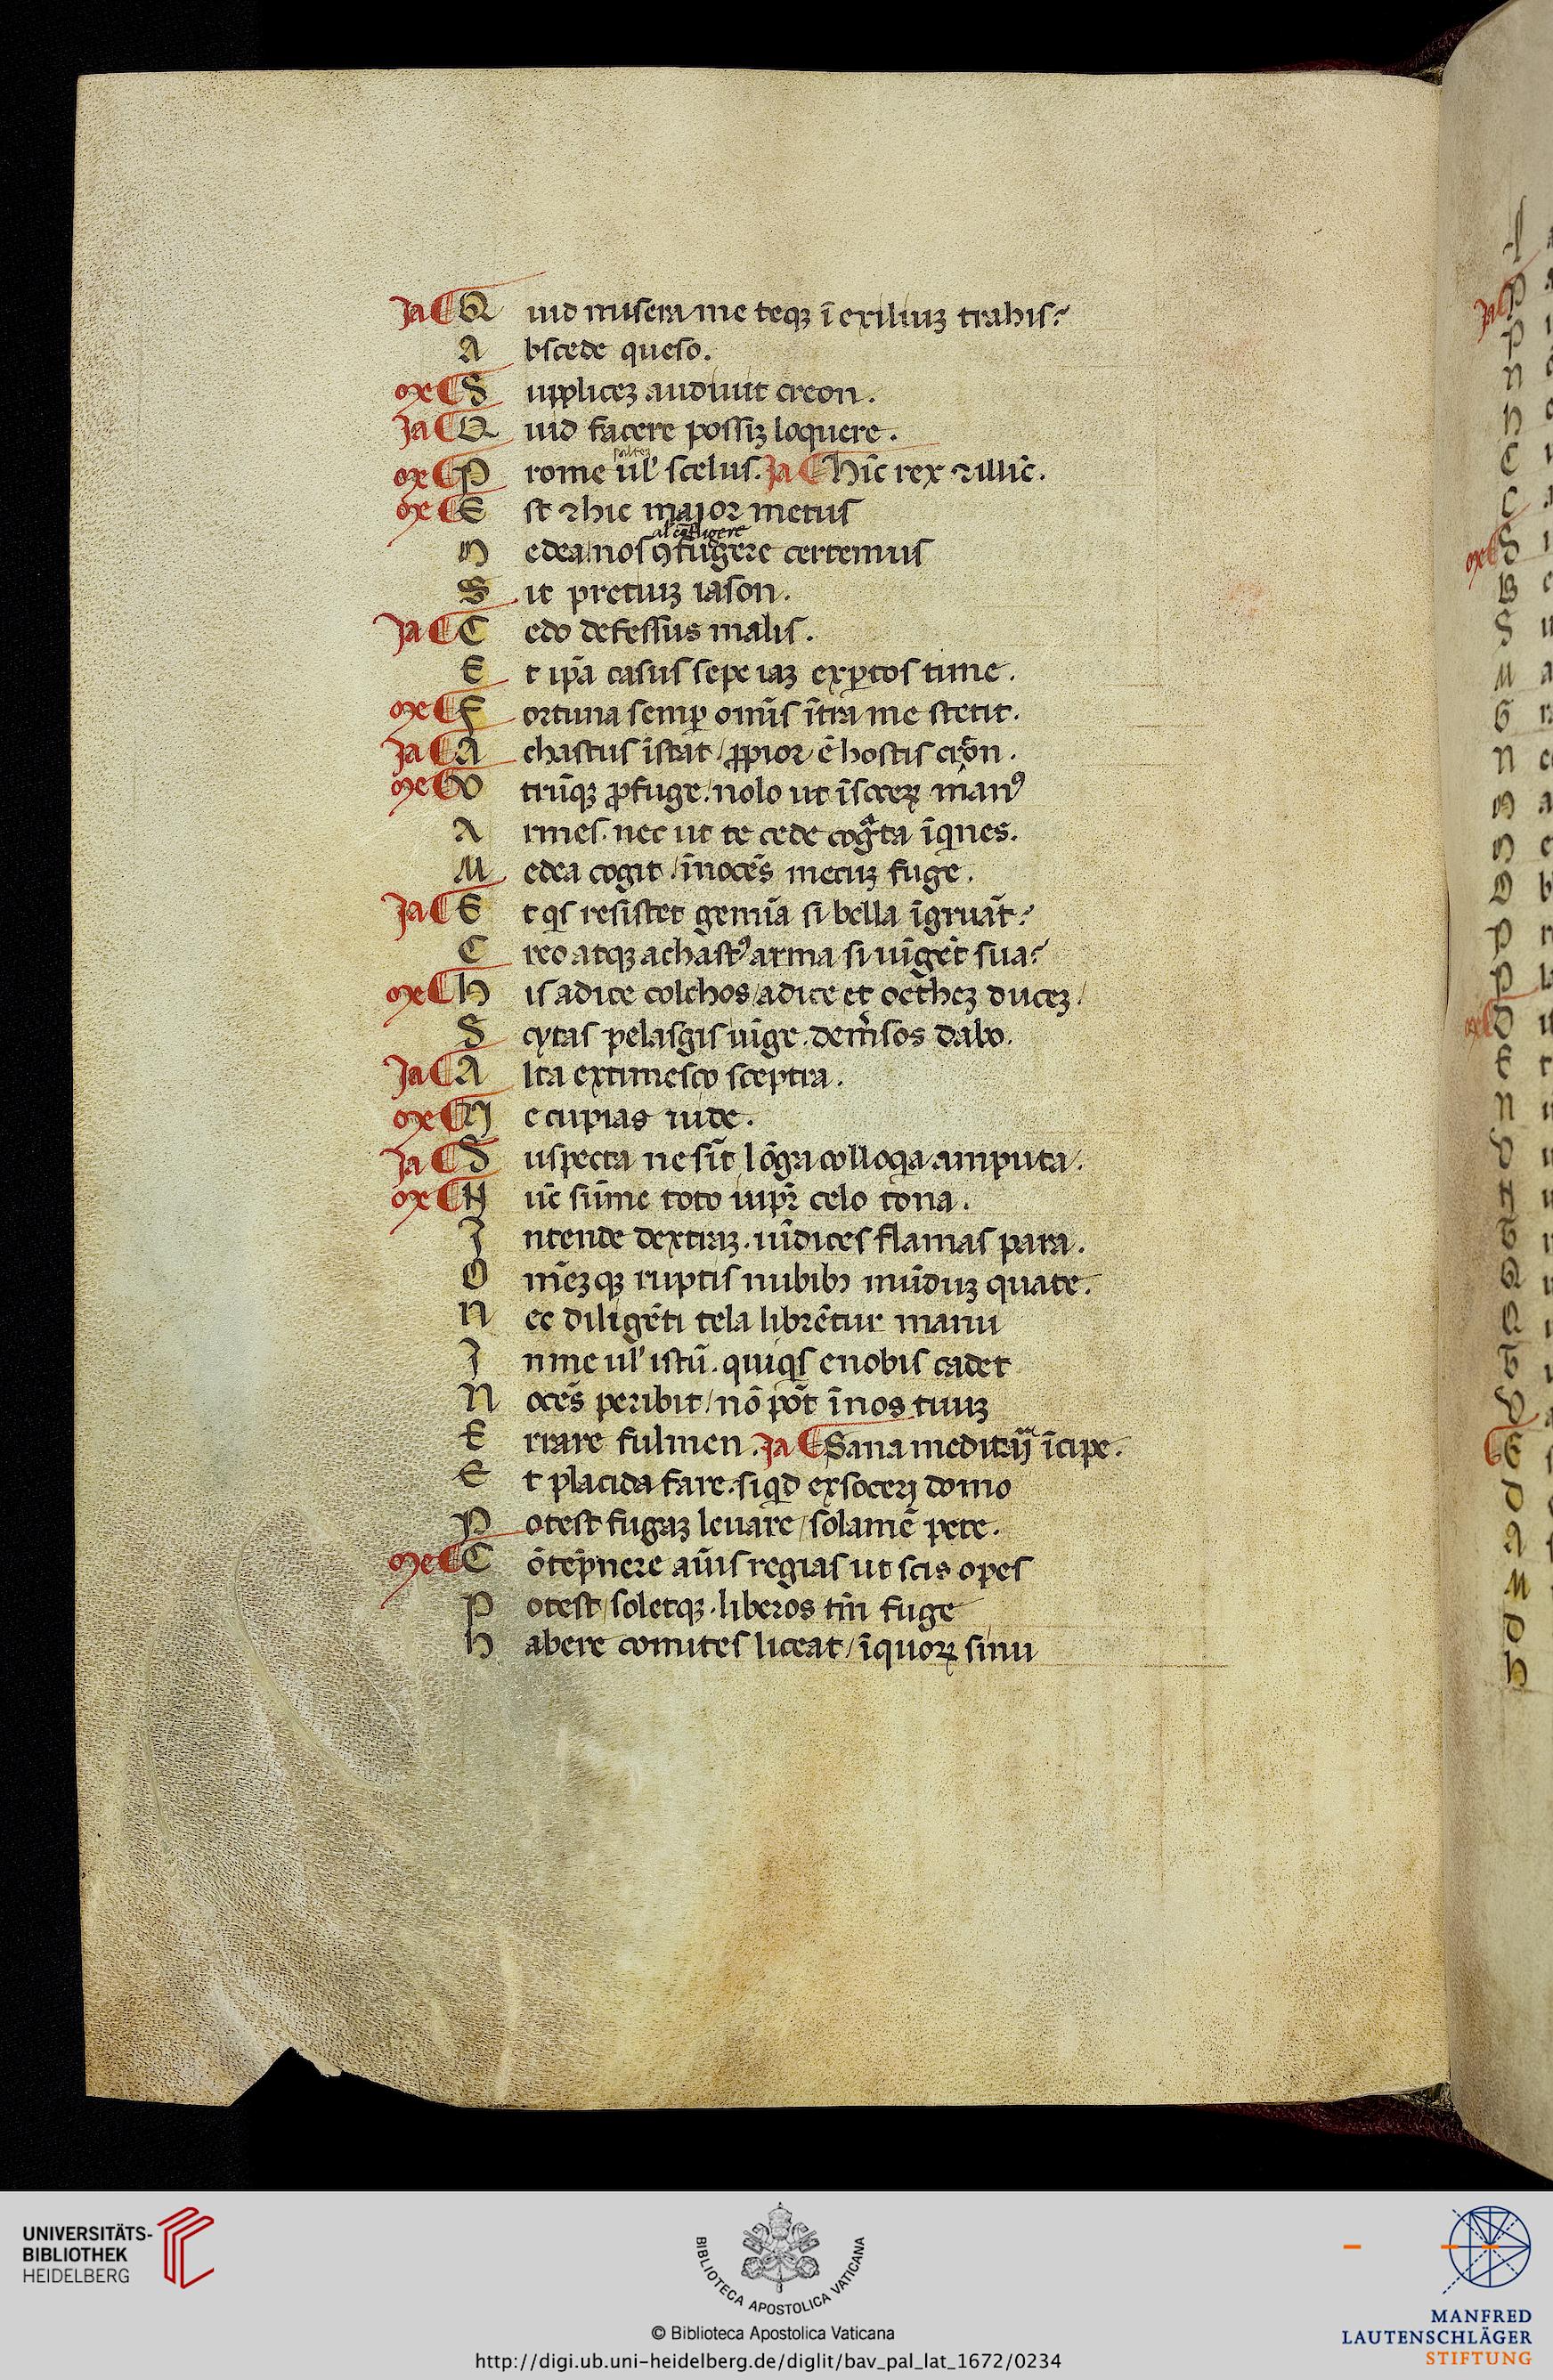 Ja Q uid misera me teqꝫ ī exiliuꝫ trahis?
A bscede queso.
me S uppliceꝫ audiuit creon.
Ja Q uid facere possiꝫ loquere.
me P rome ul' scelus. Ja Hīc rex ⁊ illīc.
me E st ⁊ hic major metus
al' cōfligere
M edea. nos ꝯfugere certemus
S it pretiuꝫ iason.
Ja C edo defessus malis.
E t ip̄a casus sepe iaꝫ exꝑtos time.
me F ortuna semꝑ om̄is ītra me stetit.
Ja A chastus īstat / ꝓpior ē hostis creon.
me V trūqꝫ ꝓfuge. nolo ut ī soceꝝ manꝰ
A rmes. nec ut te cede cogͣta īqnes.
M edea cogit / īnocēs mecuꝫ fuge.
Ja E t qs resistet gemīa si bella īgruāt?
C reo atqꝫ achastꝰ arma si uīgēt sua?
me H is adice colchos / adice et oetheꝫ duceꝫ.
S cytas pelasgis iūge. demͥsos dabo.
Ja A lta extimesco sceptra.
me N e cupias uide.
Ja S uspecta ne sīt lōga colloqa amputa.
me N ūc sūme toto iupꝑ celo tona.
I ntende dextraꝫ. uīdices flamas para.
O m̄eꝫqꝫ ruptis nubibꝫ mūduꝫ quate.
N ec diligēti tela librētur manu
I n me ul' istū. quiqs e nobis cadet
N ocēs peribit / nō pōt ī nos tuuꝫ
E rrare fulmen. Ja Sana meditarj īcipe.
E t placida fare. siqd ex socerj domo
P otest fugaꝫ leuare / solamē pete.
me C ōtēpnere aīuis regias ut scis opes
P otest / soletqꝫ. liberos tm̄ fuge
H abere comites liceat / ī quoꝝ sinu
UNIVERSITÄTS-
BIBLIOTHEK
HEIDELBERG
BIBLIOTECA APOSTOLICA VATICANA
© Biblioteca Apostolica Vaticana
http://digi.ub.uni-heidelberg.de/diglit/bav_pal_lat_1672/0234
MANFRED
LAUTENSCHLÄGER
STIFTUNG